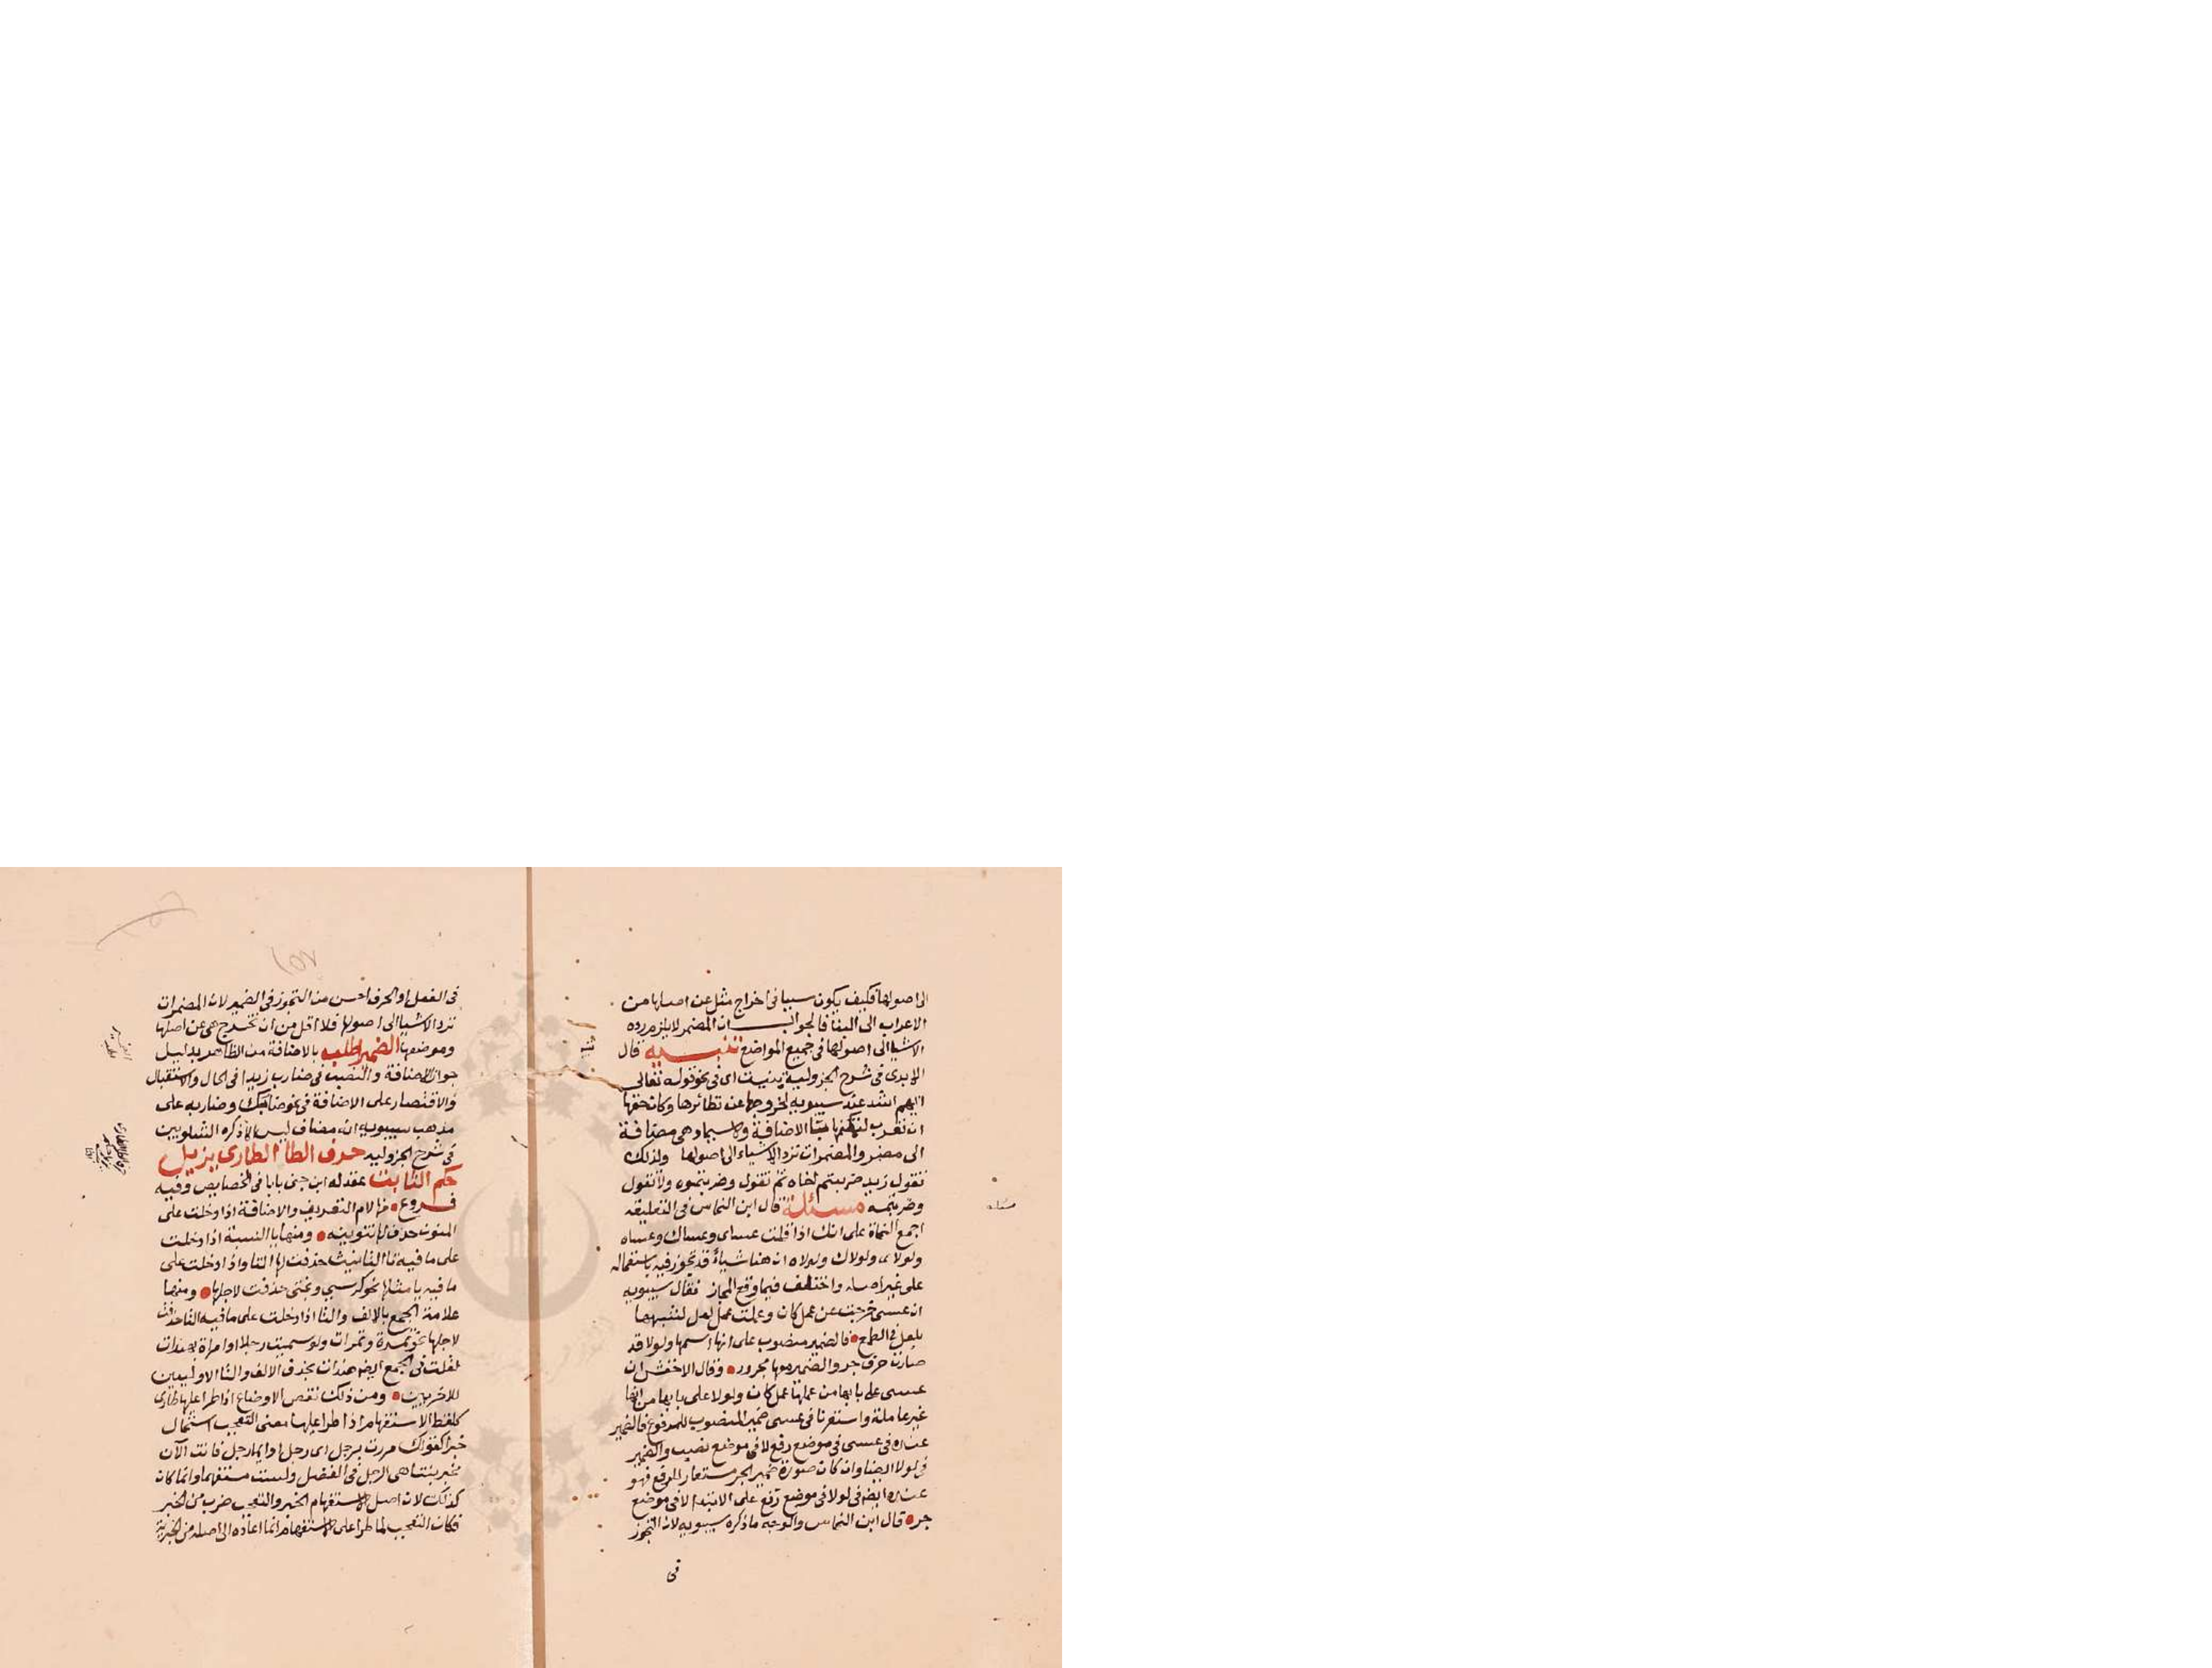 الى اصولها فكيف يكون سببا فى اخراج مثل عن اصلها من
الاعراب الى البنا فالجواب ان المضمر لا يلزم رده
الاشيا الى اصولها فى جميع المواضع تنبيه قال
الابدى فى شرح الجزولية بنيت اى فى نحو قوله تعالى
ايهم اشد عند سيبويه لخروجها عن نظائرها وكان حقها
ان تعرب لتمكنها بنا الاضافة ولا سيما وهى مضافة
الى مضمر والمضمرات ترد الاشياء الى اصولها ولذلك
تقول زيد ضربتم اخاه ثم تقول وضربتموه ولا تقول
وضربتمه مسئلة قال ابن النحاس فى التعليقه
اجمع النحاة على انك اذا قلت عساى وعساك وعساه
ولولاى ولولاك ولولاه ان هنا شيأ قد تجوز فيه باستعماله
على غير اصله واختلف فيما وقع المجاز فقال سيبويه
ان عسى خرجت عن عمل كان وعملت عمل لعل لشبهها
بلعل فى الطمع فالضمير منصوب على انها اسمها ولولا قد
صارت حرف جر والضمير بها مجرور وقال الاخفش ان
عسى على بابها من عملها عمل كان ولولا على بابها من انها
غير عاملة واستعرنا فى عسى ضمير المنصوب للمرفوع فالضمير
عنده فى عسى فى موضع رفع لا فى موضع نصب والضمير
فى لولا ايضا وان كان صورة ضمير الجر مستعار للرفع فهو
عنده ايضا فى لولا فى موضع رفع على الابتدا لا فى موضع
جر قال ابن النحاس والوجه ما ذكره سيبويه لان التجوز
فى
مسئله
فى الفعل او الحرف احسن من التجوز فى الضمير لان المضمرات
ترد الاشيا الى اصولها فلا اقل من ان تخرج هى عن اصلها
وموضعها الضمير اطلب بالاضافة من الظاهر بدليل
جواز الاضافة والنصب فى ضارب زيدا فى الحال والاستقبال
والاقتصار على الاضافة فى نحو ضاربك وضاربه على
مذهب سيبويه انه مضاف ليس الا ذكره الشلوبين
فى شرح الجزوليه حرف الطا الطارى يزيل
حكم الثابت عقد له ابن جنى بابا فى الخصايص وفيه
فروع منها لام التعريف والاضافة اذا دخلت على
المنون حذف لها تنوينه ومنها يا النسبة اذا دخلت
على ما فيه تا التانيث حذفت لها التا واذا دخلت على
ما فيه يا مثلها نحو كرسى وبختى حذفت لاجلها ومنها
علامة الجمع بالالف والتا اذا دخلت على ما فيه التا حذفت
لاجلها نحو تمرة وتمرات ولو سميت رجلا او امراة بهندات
لقلت فى الجمع ايضا هندات بحذف الالف والتا الاوليين
للاخريين ومن ذلك نقض الاوضاع اذا طرا عليها طارى
كلفظ الاستفهام اذا طرا عليها معنى التعجب استحال
خبرا كقولك مررت برجل اى رجل او ايما رجل فانت الآن
مخبر بتناهى الرجل فى الفضل ولست مستفهما وانما كان
كذلك لان اصل الاستفهام الخبر والتعجب ضرب من الخبر
فكان التعجب لما طرا على الاستفهام انما اعاده الى اصله من الخبرية